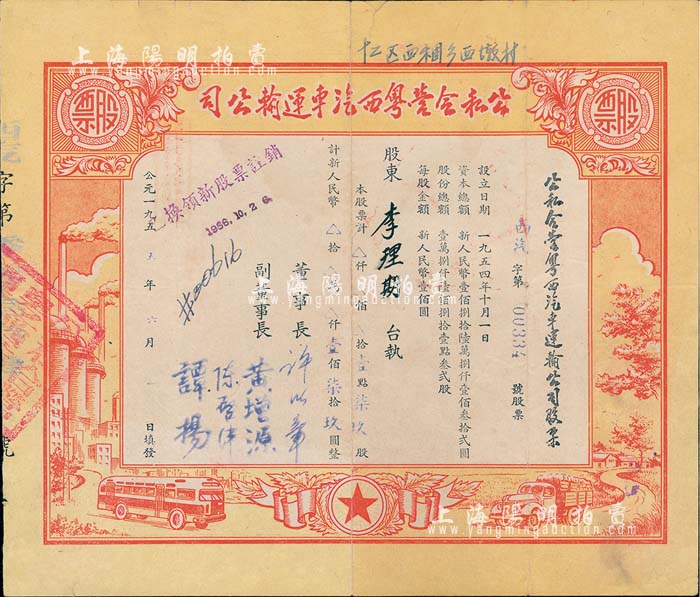 十二区西相乡西墩村
公私合营粤西汽車運輸公司
股票
股票
公私合营粤西汽車運輸公司股票
西汽字第 00334 號股票
設立日期 一九五四年十月一日
資本總額 新人民幣壹佰捌拾陸萬捌仟壹佰叁拾弍圓
股份總額 壹萬捌仟陸佰捌拾壹點叁弍股
每股金額 新人民幣壹佰圓
股東 李理期 台執
本股票計 △仟△佰△拾壹點柒玖股
計新人民幣 △拾△萬△仟壹佰柒拾玖圓整
董事長 許以章
副董事長 黄增源
陈啓津
譚揚
換領新股票註銷
1956.10.26
#00616
公元一九五五年六月一日填發
字第
號
上海陽明拍賣
www.yangmingauction.com
上海陽明拍賣
www.yangmingauction.com
上海陽明拍賣
www.yangmingauction.com